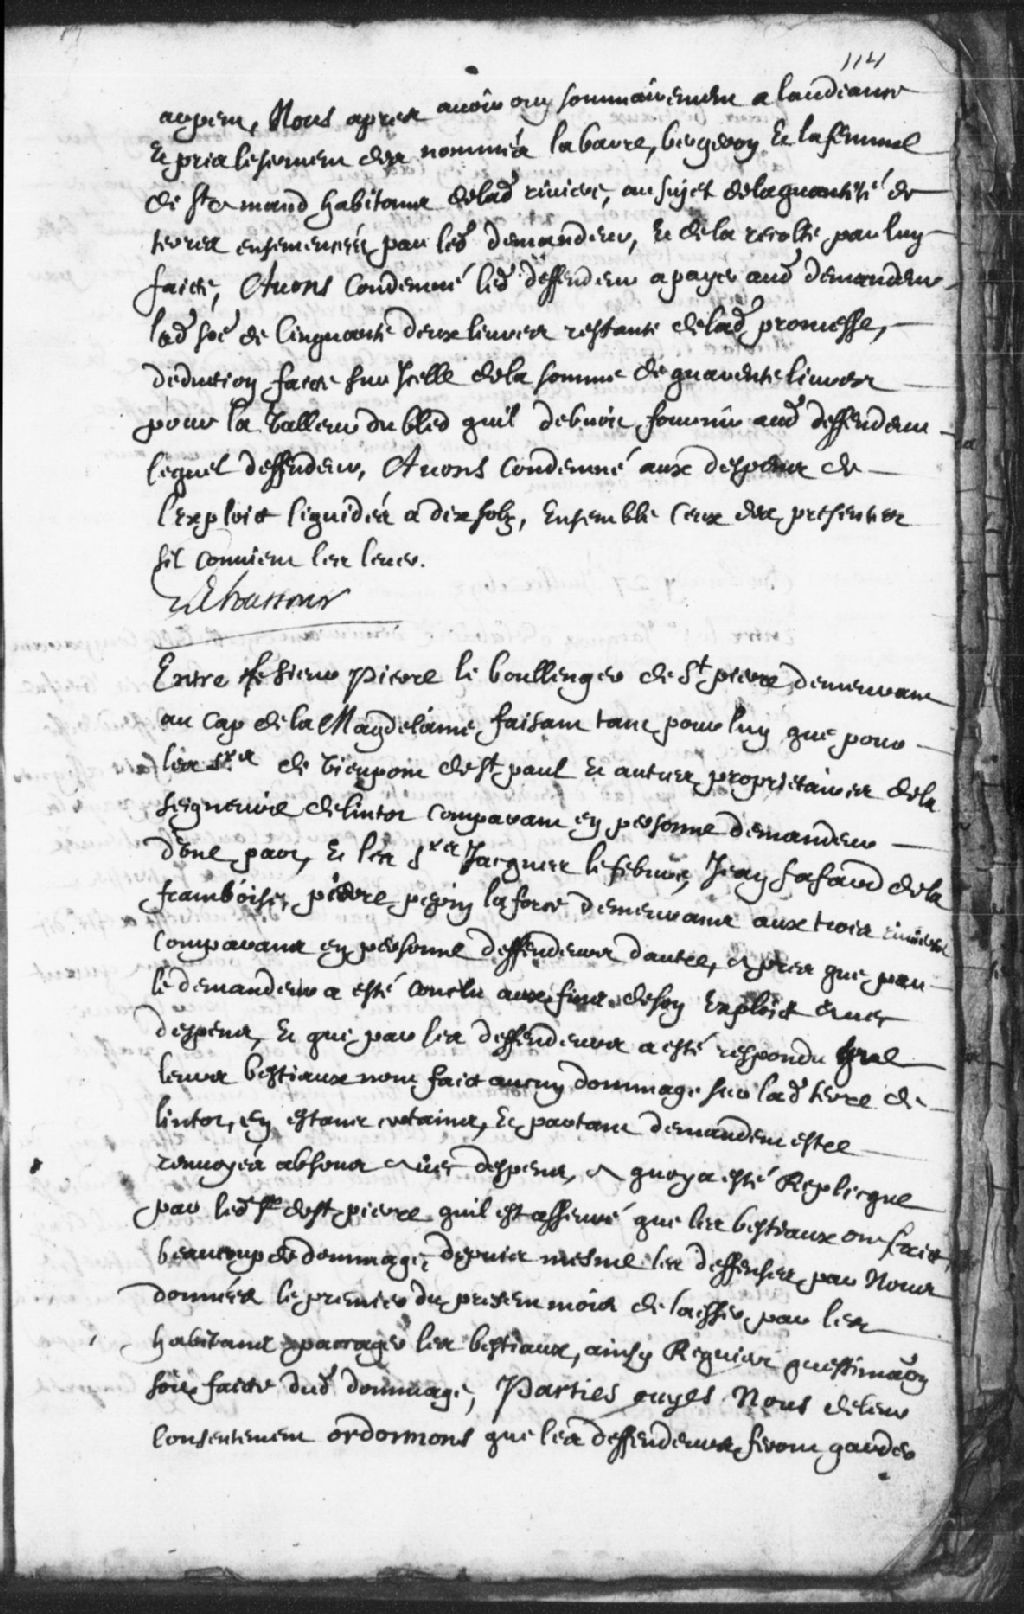 114
arpent, Nous apres avoir ouy sommairement a laudiance
Et pris le serment des nommés labarre, bergeron Et la femme
de St Amand habitans delad riviere, au sujet dela quantité de
terres ensemencées par led demandeur, Et de la recolte par luy
faicte, Avons Condemné led deffendeur a payer aud demandeur
lad soe de Cinquante deux livres restante delad promesse,
deduction faicte sur Icelle dela somme de quarente livres
pour la valleur du bled quil debvoit fournir aud deffendeur
lequel deffendeur, Avons Condemné aux despens de
l'exploict liquidés a dix solz, Ensemble Ceux des presentes
sil convient les lever.
Entre le Sieur Pierre le boullenger de St pierre demeurant
au Cap dela Magdelaine faisant tant pour luy que pour
les Srs de vieupont de St paul Et autres proprietaires dela
seigneurie delintot comparant en personne demandeur
d'une part, Et les Srs Jacques lefebvre, Jean fafard dela
framboise, pierre pepin laforce demeurans aux trois rivieres
comparans en personne deffendeurs dautre, Apres que par
le demandeur a esté conclu aux fins deson Exploict avec
despens, Et que par les deffendeurs a esté respondu que
leurs bestiaux nont faict aucun dommage sur lad terre de
lintot, en estant certains, Et partant demandent estre
renvoyés absous Avec despens, A quoy a esté Replicqué
par led Sr de St pierre quil est asseuré que les bestiaux ont faict
beaucoup de dommage, depuis mesme les deffenses par Nous
données le premier du present mois de laisser par les
habitans pacager les bestiaux, ainsy Requier questimaon
soit faicte dud dommage, Parties ouyes Nous deleur
Consentement ordonnons que les deffendeurs feront garder